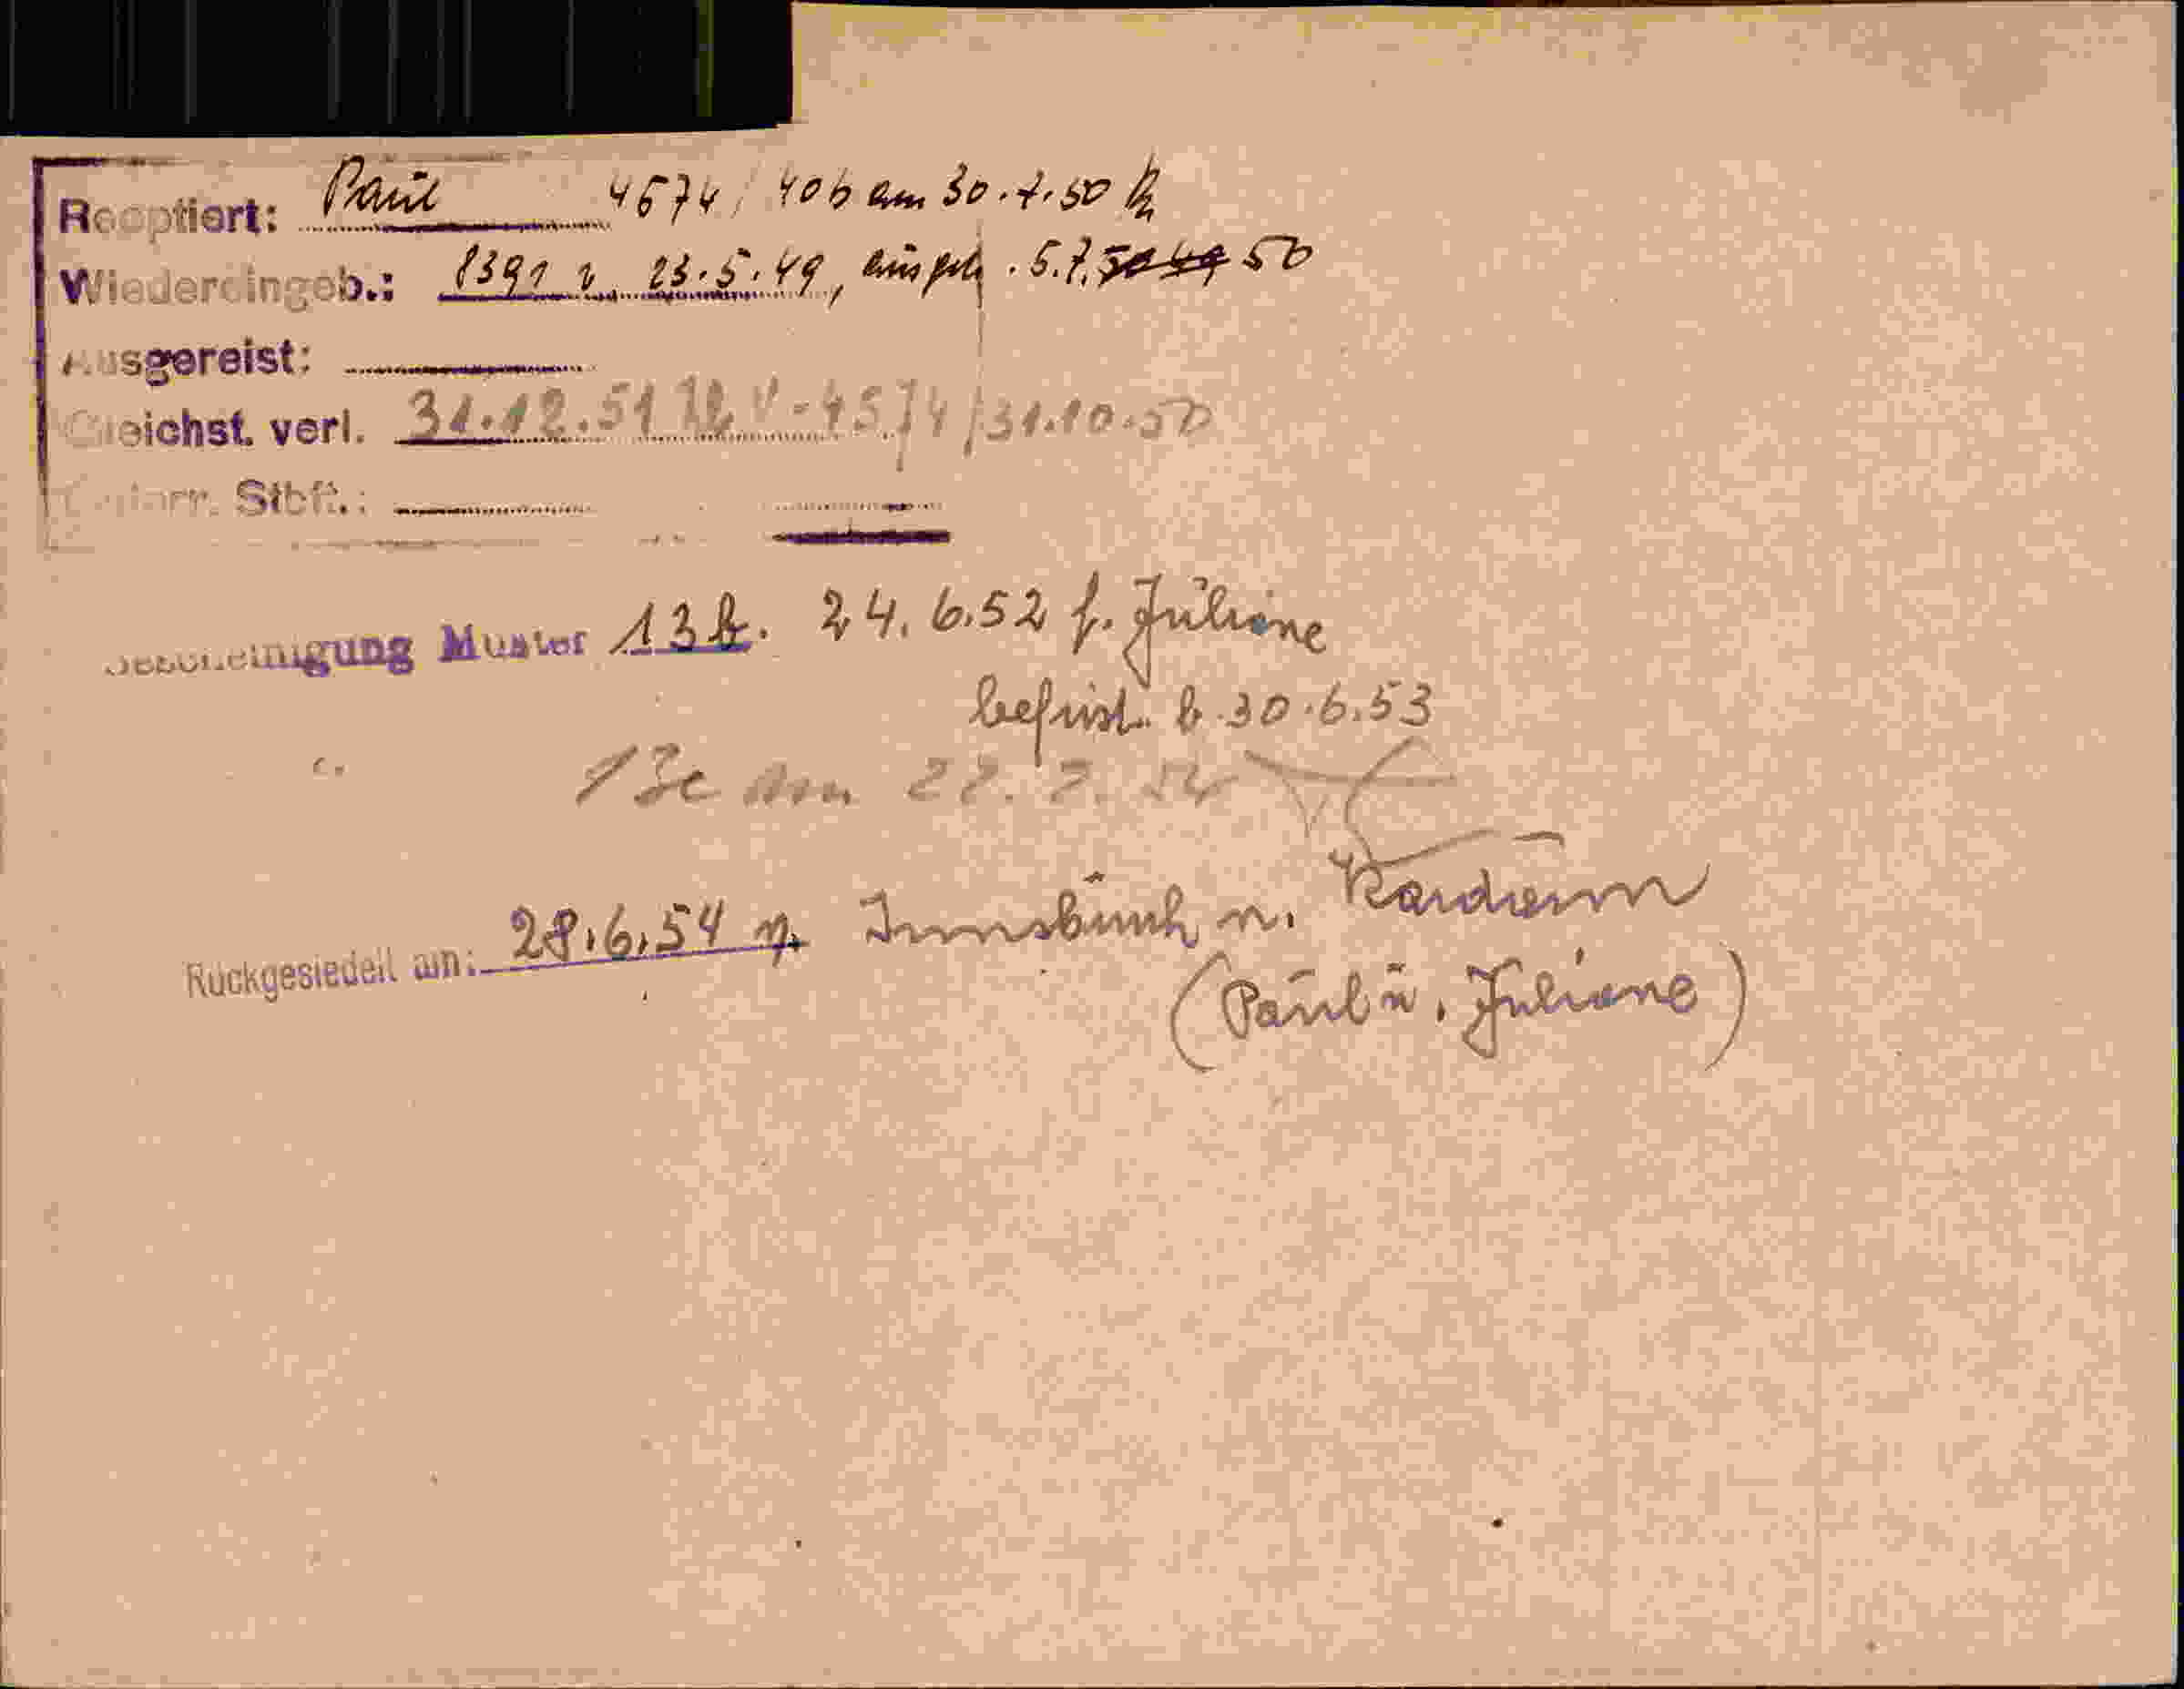 Reoptiert: Paul 4574/406 am 30.7.50
Wiedereingeb.: 8391 v. 23.5.49, ausgeh. 5.7. 50 49 50
Ausgereist:
Gleichst. verl. 31.12.51 V-4574/31.10.50
Stbft.:
Bescheinigung Muster 13b. 24.6.52 f. Juliane
befrist. b. 30.6.53
13c am 22.
Rückgesiedelt am: 28.6.54 v. Innsbruck n. Kardaun
(Paul u. Juliane)